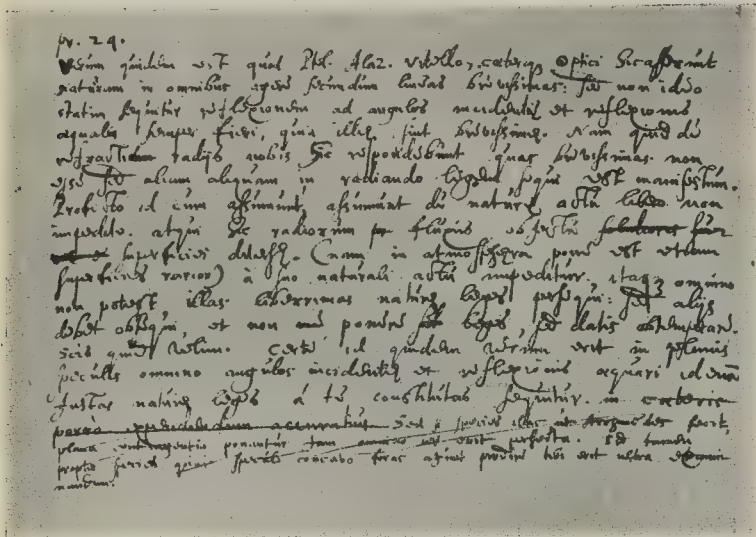 pr. 29.
Verum quidem est quod Ptol. Alaz. Vitello, caeterique Optici hic asserunt
naturam in omnibus agere secundum lineas brevissimas: sed non ideo
statim sequitur reflexionem ad angulos incidentiae et reflexionis
aequales semper fieri, quia illae sint brevissimae. Nam quid de
refractis radijs nobis hic respondebunt quas brevissimas non
esse sed aliam aliquam in radiando legem sequi est manifestum.
Profecto id cum assumunt, assumunt de naturae actu libero non
impedito. atqui hic radiorum fluxus objectu
superficiei densae. (nam in atmosphaera pone est etiam
superficies rarior) à suo naturali actu impeditur. itaque omnino
non potest illas liberrimas naturae leges persequi: sed alijs
debet obsequi, et non ponere leges, sed datis obtemperare.
Scis quid velim. Certe id quidem verum erit in planis
speculis omnino angulos incidentiae et reflexionis aequari id enim
justas naturae leges à te constitutas sequitur. in caeteris
porro Sed si species
plana contingentio ponuntur tam erit perfecta. sed tamen
propter species quae speculo concavo foras